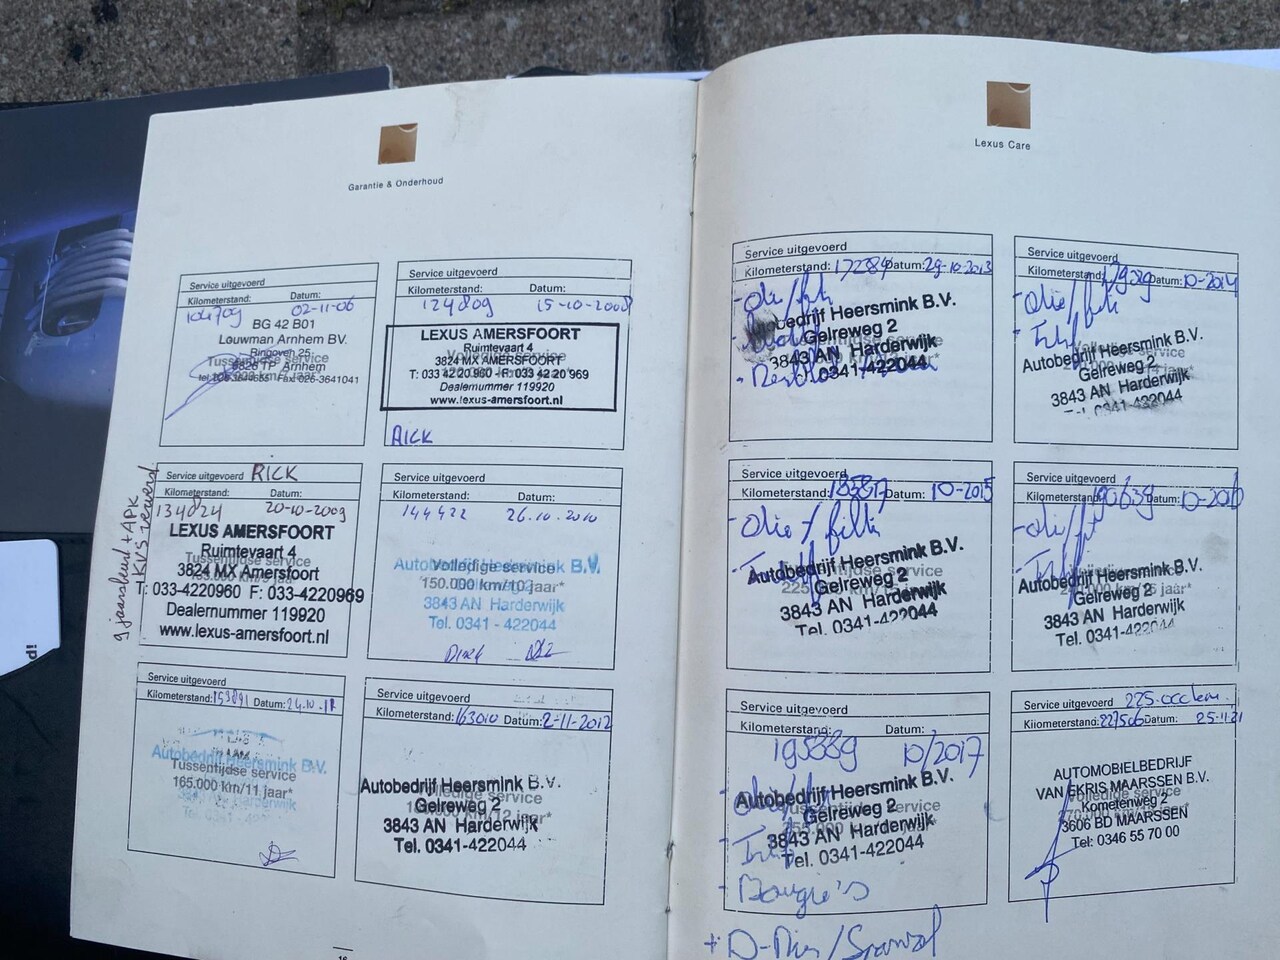 Garantie & Onderhoud
Service uitgevoerd
Kilometerstand: Datum:
104709 02-11-06
BG 42 B01
Louwman Arnhem BV.
Ringoven 25
6826 TP Arnhem
Tussentijdse service
Service uitgevoerd
Kilometerstand: Datum:
124809 15-10-2008
LEXUS AMERSFOORT
Ruimtevaart 4
3824 MX AMERSFOORT
T: 033 4220 960 F: 033 42 20 969
Dealernummer 119920
www.lexus-amersfoort.nl
RICK
Service uitgevoerd RICK
Kilometerstand: Datum:
134824 20-10-2009
LEXUS AMERSFOORT
Ruimtevaart 4
Tussentijdse service
3824 MX Amersfoort
T: 033-4220960 F: 033-4220969
Dealernummer 119920
www.lexus-amersfoort.nl
9 jaarsbeurt + APK
Service uitgevoerd
Kilometerstand: Datum:
144422 26.10.2010
Autobedrijf Heersmink B.V.
Volledige service
150.000 km/10 jaar*
3843 AN Harderwijk
Tel. 0341 - 422044
Service uitgevoerd
Kilometerstand: 153891 Datum: 24.10.11
Autobedrijf Heersmink B.V.
Tussentijdse service
165.000 km/11 jaar*
Service uitgevoerd
Kilometerstand: 163010 Datum: 2-11-2012
Autobedrijf Heersmink B.V.
Volledige service
Gelreweg 2
km/12 jaar*
3843 AN Harderwijk
Tel. 0341-422044
16
Lexus Care
Service uitgevoerd
Kilometerstand: Datum: 29-10-2013
- Olie/filt
Autobedrijf Heersmink B.V.
Gelreweg 2
3843 AN Harderwijk
0341-422044
Service uitgevoerd
Kilometerstand: Datum: 10-2014
- Olie/filt
Autobedrijf Heersmink B.V.
Gelreweg 2
3843 AN Harderwijk
0341-422044
Service uitgevoerd
Kilometerstand: Datum: 10-2015
- Olie / filt
Autobedrijf Heersmink B.V.
Gelreweg 2
3843 AN Harderwijk
Tel. 0341-422044
Service uitgevoerd
Kilometerstand: 190639 Datum: 10-2016
Autobedrijf Heersmink B.V.
Gelreweg 2
3843 AN Harderwijk
Tel. 0341-422044
Service uitgevoerd
Kilometerstand: Datum:
195889 10/2017
Autobedrijf Heersmink B.V.
Tussentijdse service
Gelreweg 2
3843 AN Harderwijk
Tel. 0341-422044
- Bougie's
Service uitgevoerd 225.000 km.
Kilometerstand: 227506 Datum: 25-11-21
AUTOMOBIELBEDRIJF
VAN EKRIS MAARSSEN B.V.
Volledige service
Kometenweg 2
3606 BD MAARSSEN
Tel: 0346 55 70 00